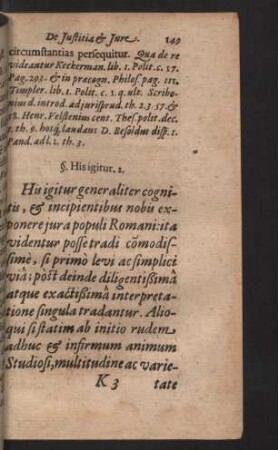 De Justitia & Jure. 149
circumstantias persequitur. Qua de re
videantur Keckerman. lib. 1. Polit. c. 17.
Pag. 293. & in præcogn. Philos. pag. 111.
Timpler. lib. 1. Polit. c. 1. q. ult. Scribo-
nius d. introd. ad jurisprud. th. 2.3.57 &
12. Henr. Velstenius cent. Thes. polit. dec.
1. th. 9. hosq; laudans D. Besoldus disp. 1.
Pand. adl. 1. th. 3.
§. His igitur. 2.
His igitur generaliter cogni-
tis, & incipientibus nobis ex-
ponere jura populi Romani: ita
videntur posse tradi cōmodis-
simè, si primò levi ac simplici
viâ: pòst deinde diligentißimâ
atque exactißimâ interpreta-
tione singula tradantur. Alio-
qui si statim ab initio rudem
adhuc & infirmum animum
Studiosi, multitudine ac varie-
K 3 tate